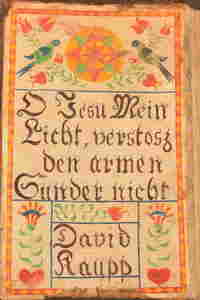 O Jesu Mein
Licht, verstosz
den armen
Sunder nicht
David
Kaupp